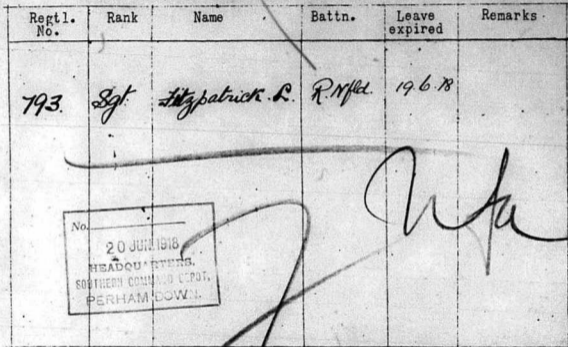 Regtl. No. Rank Name Battn. Leave expired Remarks
793. Sgt. Fitzpatrick. L. R. Nfld. 19.6.18
No.
20 JUN 1918
HEADQUARTERS,
SOUTHERN COMMAND DEPOT,
PERHAM DOWN.